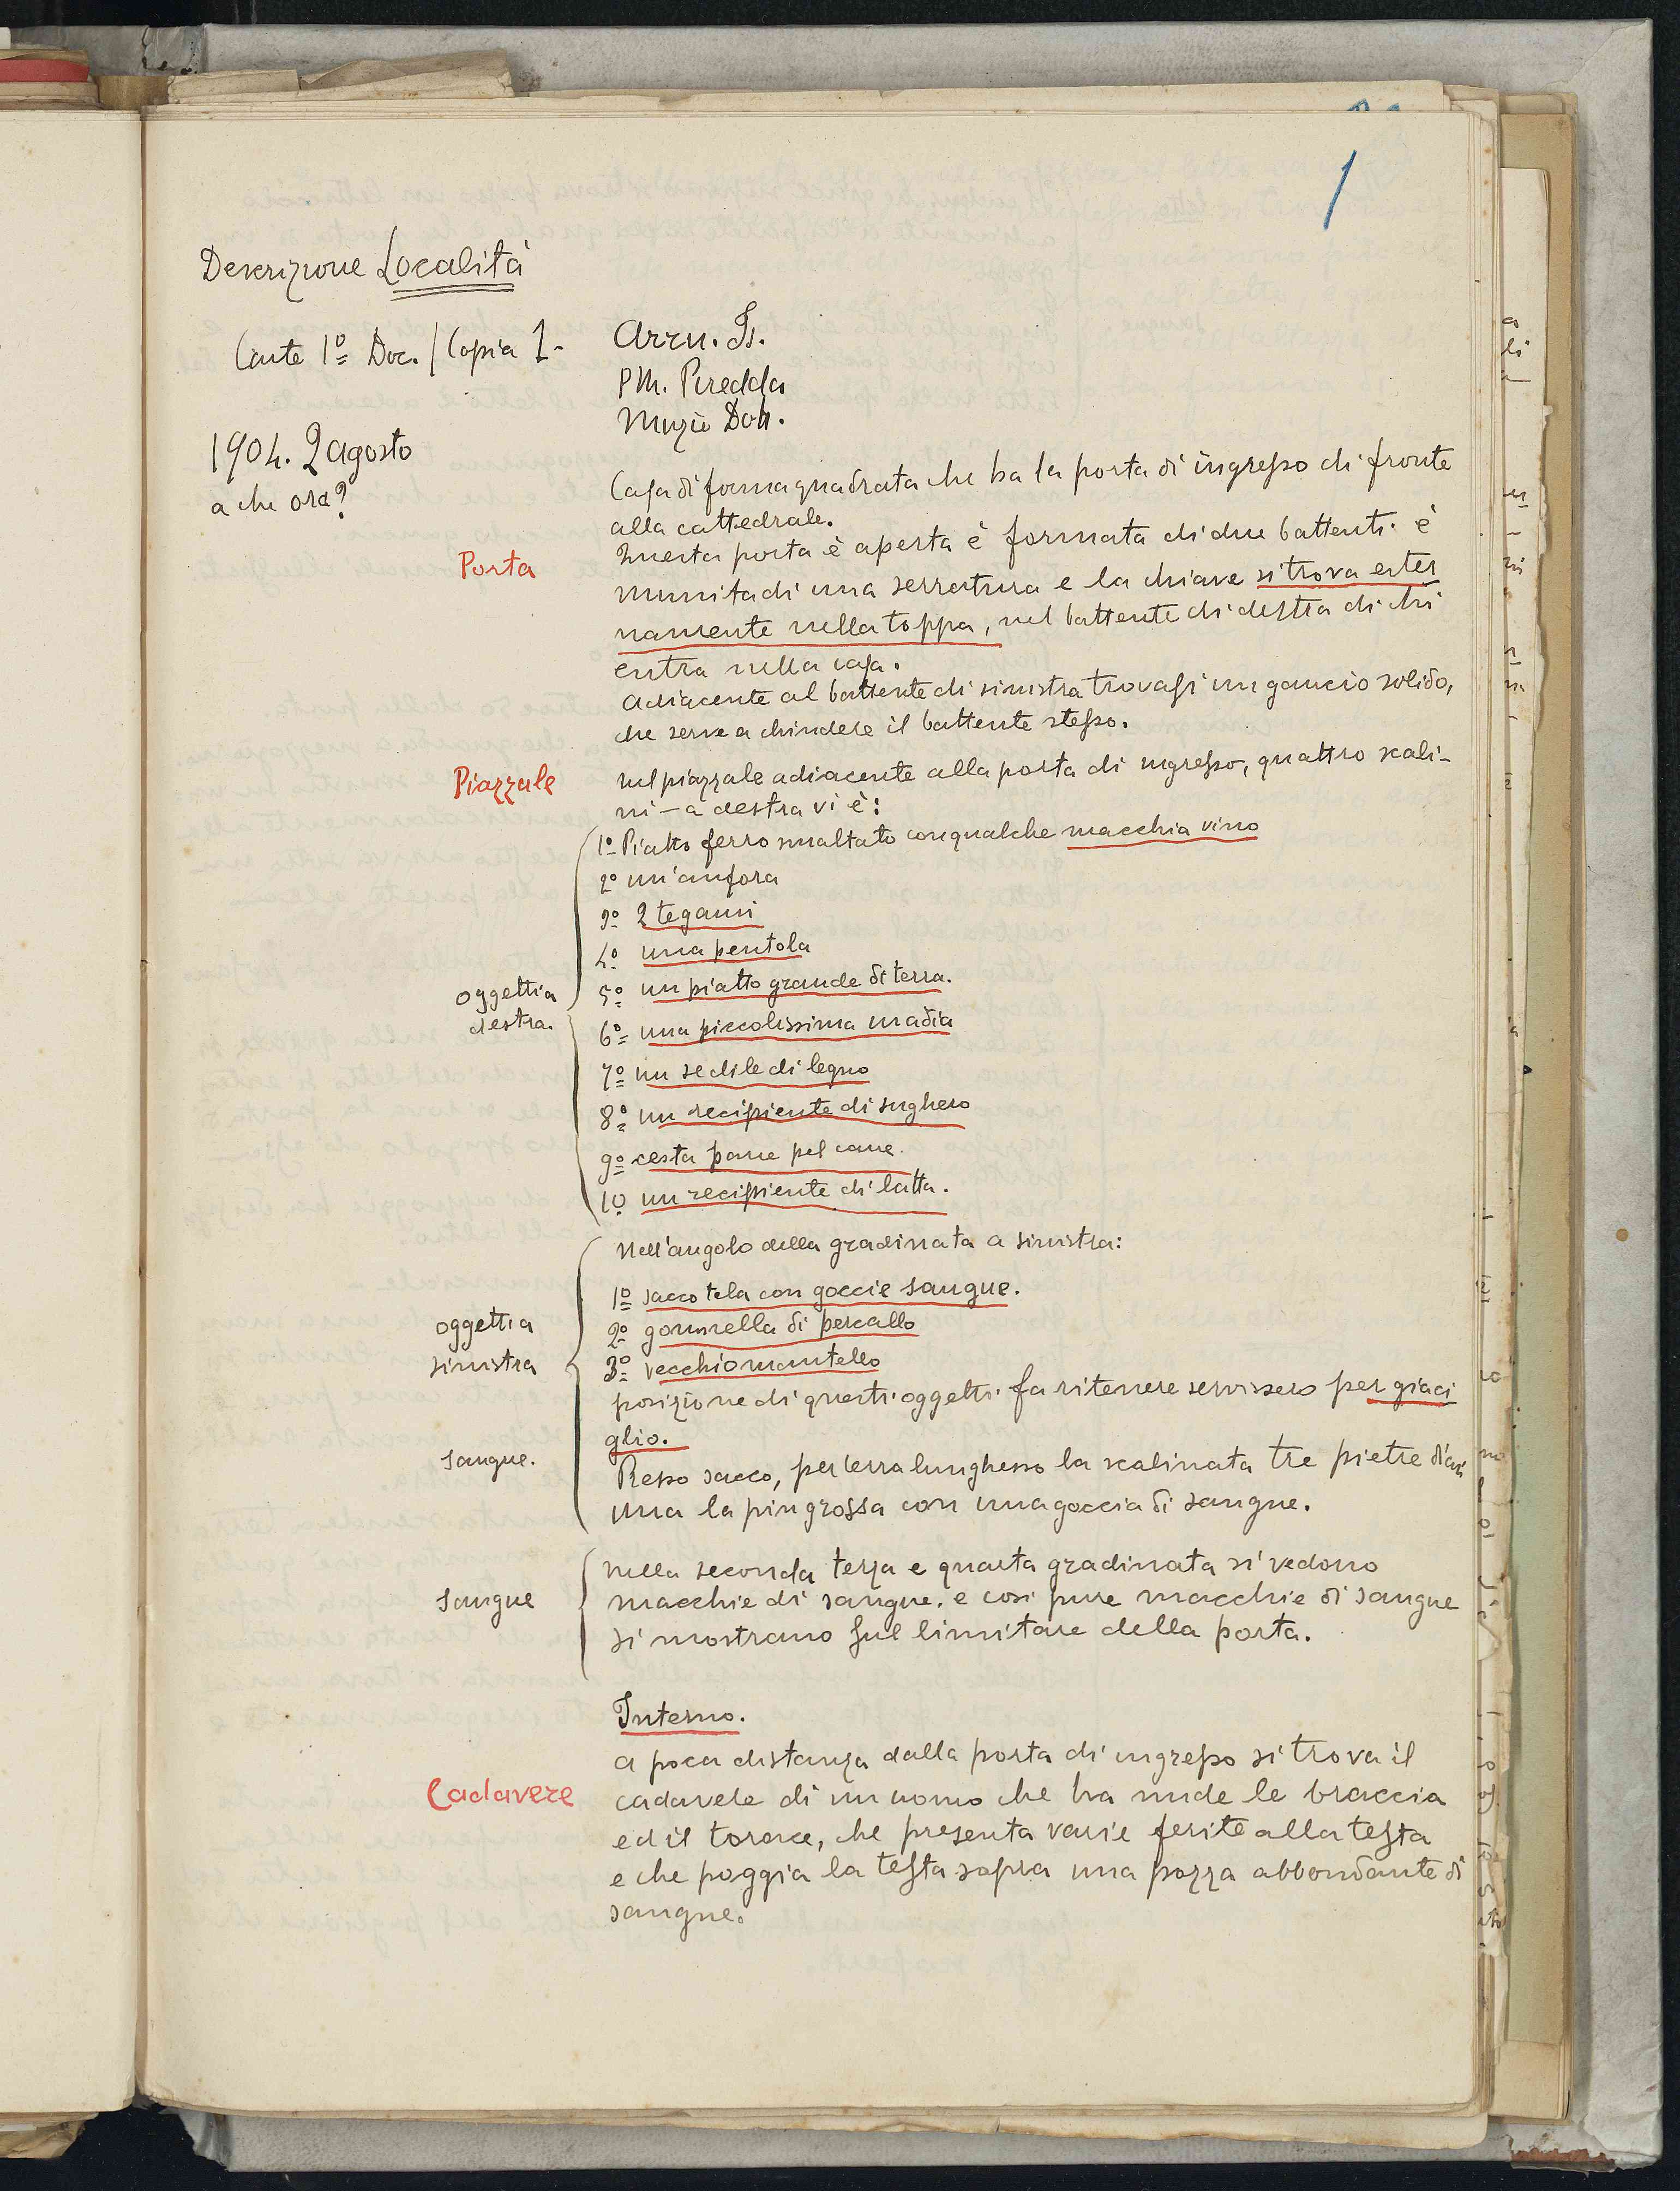 1
Descrizione Località
Conte 1º Doc. / Copia 1-
Arru. Is.
PM. Piredda
Muzio Dott.
1904. 2 agosto
a che ora?
Casa di forma quadrata che ha la porta di ingresso di fronte
alla cattedrale.
Porta
Questa porta è aperta è formata di due battenti è
munita di una serratura e la chiave si trova ester
namente nella toppa, nel battente di destra di chi
entra nella casa.
Adiacente al battente di sinistra trovasi un gancio solido,
che serve a chiudere il battente stesso.
Piazzale
nel piazzale adiacente alla porta di ingresso, quattro scali-
ni - a destra vi è:
1º Piatto ferro smaltato con qualche macchia vino
2º un'anfora
3º 2 tegami
4º una pentola
oggetti a
destra.
5º un piatto grande di terra.
6º una piccolissima madia
7º un sedile di legno
8º un recipiente di sughero
9º cesta pane pel cane.
10 un recipiente di latta.
Nell'angolo della gradinata a sinistra:
1º sacco tela con goccie sangue.
oggetti a
sinistra
2º gonnella di percallo
3º vecchio mantello
posizione di questi oggetti fa ritenere servissero per giaci
glio.
sangue.
Presso sacco, per terra lunghesso la scalinata tre pietre di cui
una la più grossa con una goccia di sangue.
sangue
nella seconda terza e quarta gradinata si vedono
macchie di sangue. e cosi pure macchie di sangue
si mostrano sul limitare della porta.
Interno.
Cadavere
A poca distanza dalla porta di ingresso si trova il
cadavere di un uomo che ha nude le braccia
ed il torace, che presenta varie ferite alla testa
e che poggia la testa sopra una pozza abbondante di
sangue.